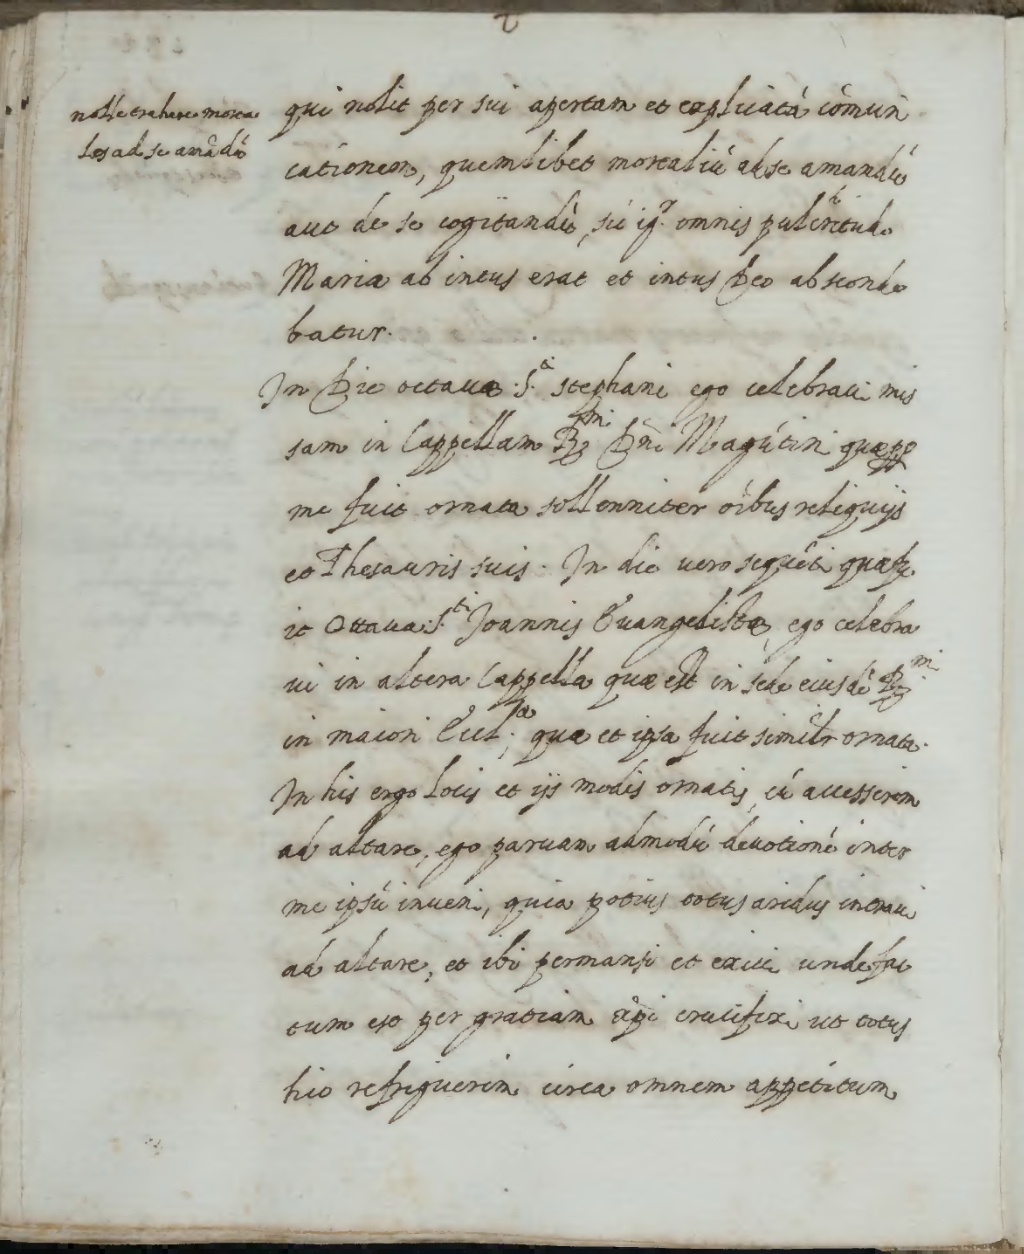 nolle trahere morta
les ad se amãdũ
qui nolit per sui apertam et explicatã cõmuni
cationem, quemlibet mortaliũ ad se amandũ
aut de se cogitandũ, sic igr omnis pulcritudo
Mariæ ab intus erat et intus Deo absconde
batur.
In Die octavæ S.ti stephani ego celebravi mis
sam in Cappellam Rmi Dñi Magũtini quæ
me fuit ornata sollenniter oĩbus reliquijs
et Thesauris suis. In die vero sequẽti quæ fu
it Ottava S.ti Joannis Evangelistæ, ego celebra
vi in altera Cappella quæ est in sede eiusdẽ Rmi
in maiori Eccl.a, quæ et ipsa fuit similr ornata.
In his ergo locis et ijs modis ornatis, cũ accesserim
ad altare, ego parvam admodũ devotionẽ inter
me ipsũ inveni, quia potius totus aridus intravi
ad altare, et ibi permansi et exivi unde fac
tum est per gratiam xp̃i crucifixi ut totus
hic refriguerim circa omnem appetitum